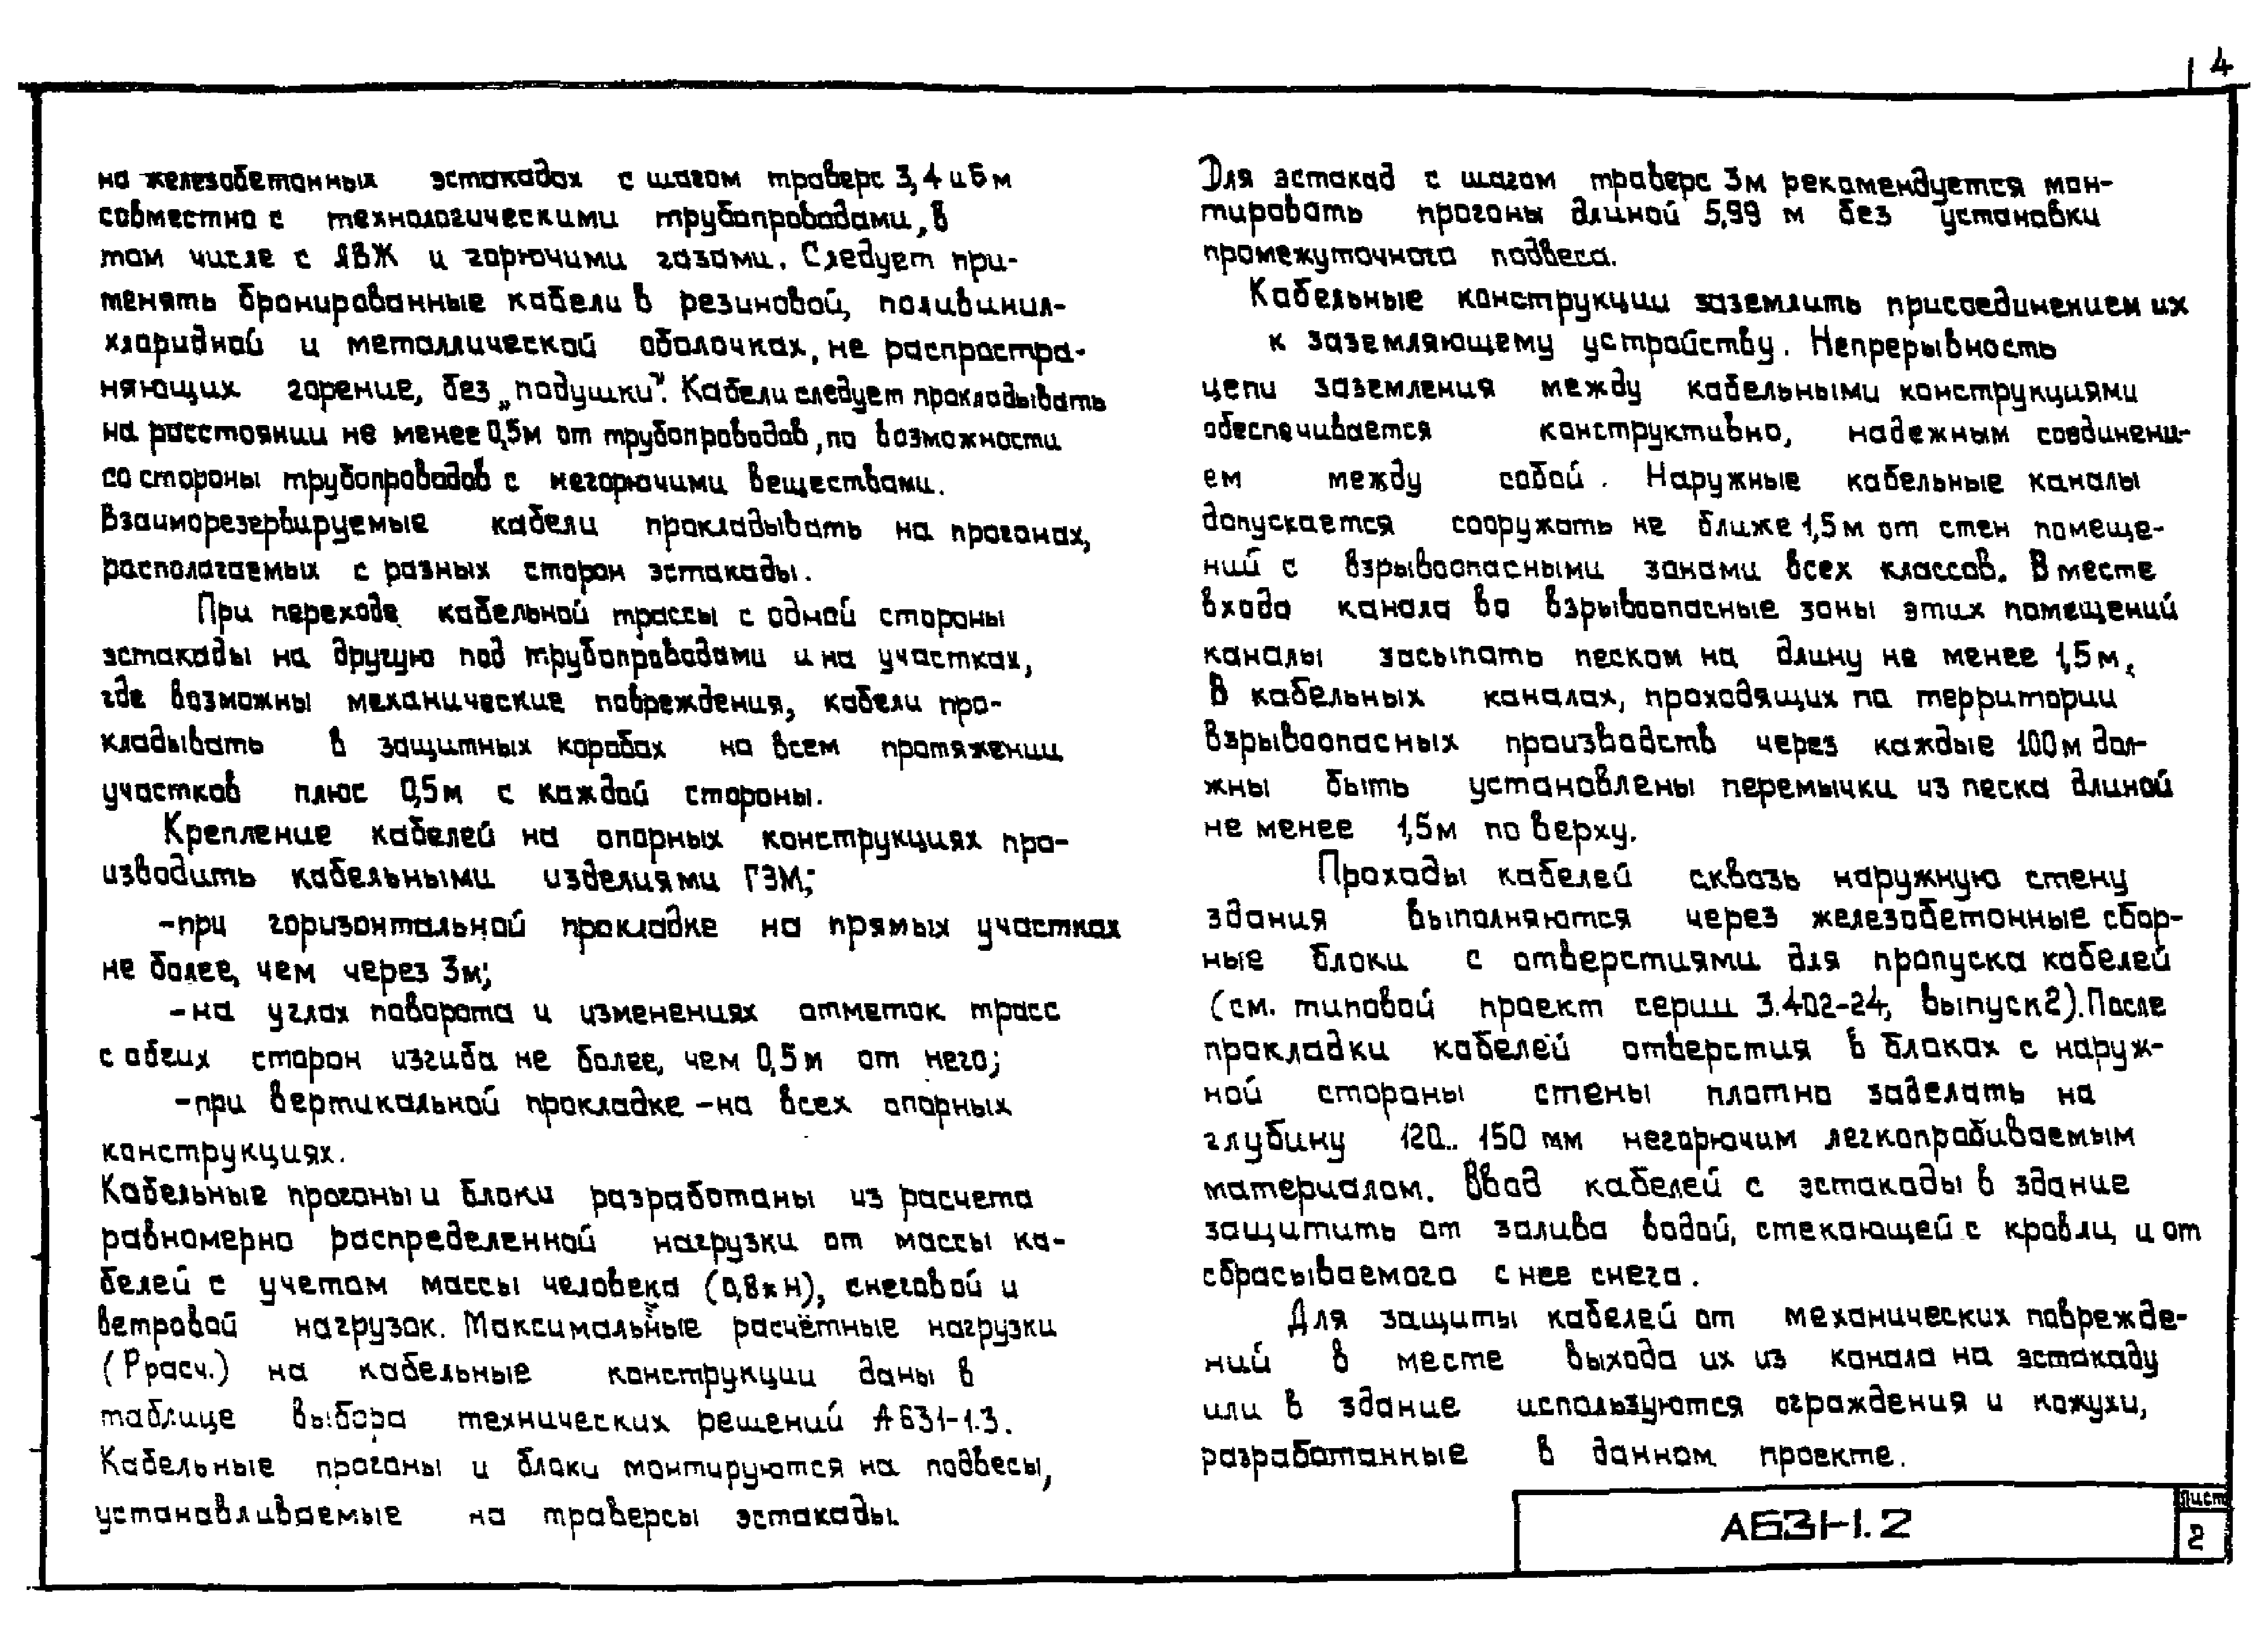 4
на железобетонных эстакадах с шагом траверс 3, 4 и 6 м
совместно с технологическими трубопроводами, в
том числе с ЛВЖ и горючими газами. Следует при-
менять бронированные кабели в резиновой, поливинил-
хлоридной и металлической оболочках, не распростра-
няющих горение, без „подушки". Кабели следует прокладывать
на расстоянии не менее 0,5м от трубопроводов, по возможности
со стороны трубопроводов с негорючими веществами.
Взаиморезервируемые кабели прокладывать на прогонах,
располагаемых с разных сторон эстакады.
При переходе кабельной трассы с одной стороны
эстакады на другую под трубопроводами и на участках,
где возможны механические повреждения, кабели про-
кладывать в защитных коробах на всем протяжении
участков плюс 0,5м с каждой стороны.
Крепление кабелей на опорных конструкциях про-
изводить кабельными изделиями ГЭМ;
-при горизонтальной прокладке на прямых участках
не более, чем через 3м;
-на углах поворота и изменениях отметок трасс
с обеих сторон изгиба не более, чем 0,5м от него;
-при вертикальной прокладке -на всех опорных
конструкциях.
Кабельные прогоны и блоки разработаны из расчета
равномерно распределенной нагрузки от массы ка-
белей с учетом массы человека (0,8кН), снеговой и
ветровой нагрузок. Максимальные расчётные нагрузки
(Ррасч.) на кабельные конструкции даны в
таблице выбора технических решений А631-1.3.
Кабельные прогоны и блоки монтируются на подвесы,
устанавливаемые на траверсы эстакады.
Для эстакад с шагом траверс 3м рекомендуется мон-
тировать прогоны длиной 5,99 м без установки
промежуточного подвеса.
Кабельные конструкции заземлить присоединением их
к заземляющему устройству. Непрерывность
цепи заземления между кабельными конструкциями
обеспечивается конструктивно, надежным соединени-
ем между собой. Наружные кабельные каналы
допускается сооружать не ближе 1,5м от стен помеще-
ний с взрывоопасными зонами всех классов. В месте
входа канала во взрывоопасные зоны этих помещений
каналы засыпать песком на длину не менее 1,5м.
В кабельных каналах, проходящих по территории
взрывоопасных производств через каждые 100м дол-
жны быть установлены перемычки из песка длиной
не менее 1,5м по верху.
Проходы кабелей сквозь наружную стену
здания выполняются через железобетонные сбор-
ные блоки с отверстиями для пропуска кабелей
(см. типовой проект серии 3.402-24, выпуск 2). После
прокладки кабелей отверстия в блоках с наруж-
ной стороны стены плотно заделать на
глубину 120.. 150 мм негорючим легкопробиваемым
материалом. Ввод кабелей с эстакады в здание
защитить от залива водой, стекающей с кровли, и от
сбрасываемого с нее снега.
Для защиты кабелей от механических поврежде-
ний в месте выхода их из канала на эстакаду
или в здание используются ограждения и кожухи,
разработанные в данном проекте.
А631-1.2
Лист
2